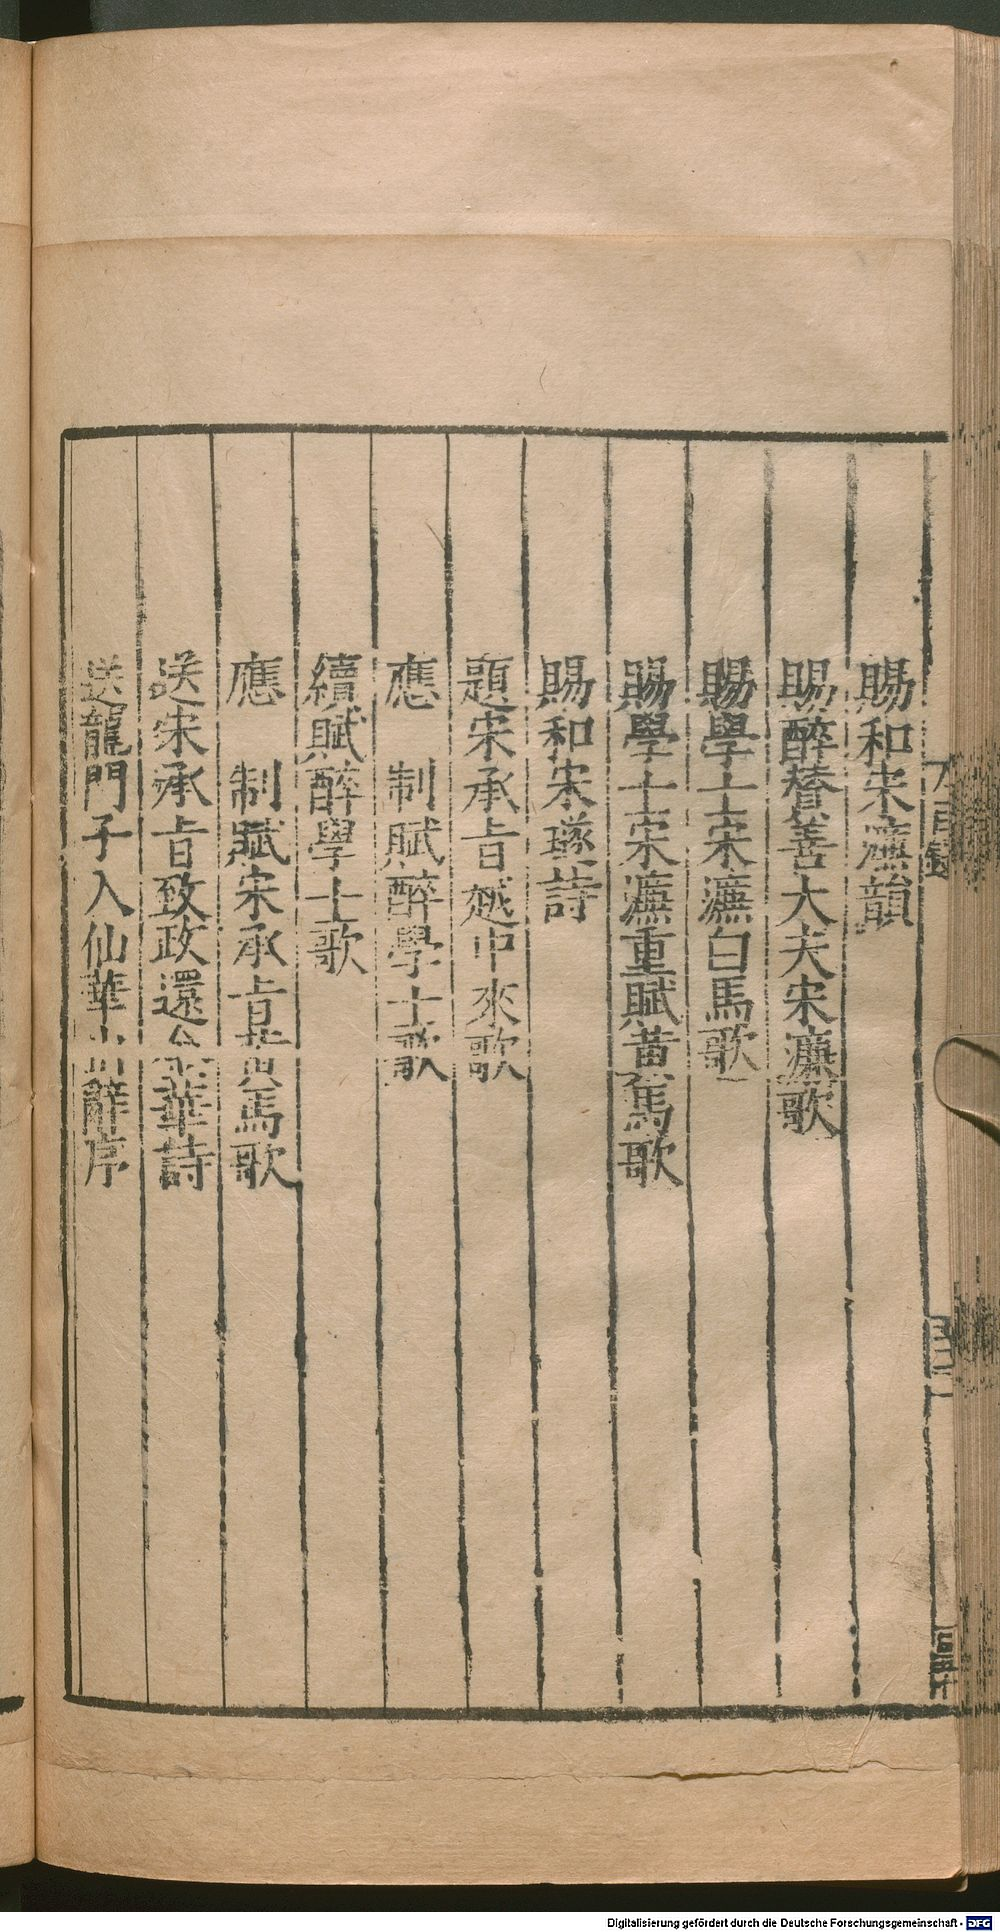 賜和宋濂韻
賜醉贊善大夫宋濂歌
賜學士宋濂白馬歌
賜學士宋濂重賦黃馬歌
賜和宋璲詩
題宋承旨越中來歌
應　制賦醉學士歌
續賦醉學士歌
應　制賦宋承旨黃馬歌
送宋承旨致政還金華詩
送龍門子入仙華山辭序
Digitalisierung gefördert durch die Deutsche Forschungsgemeinschaft - DFG